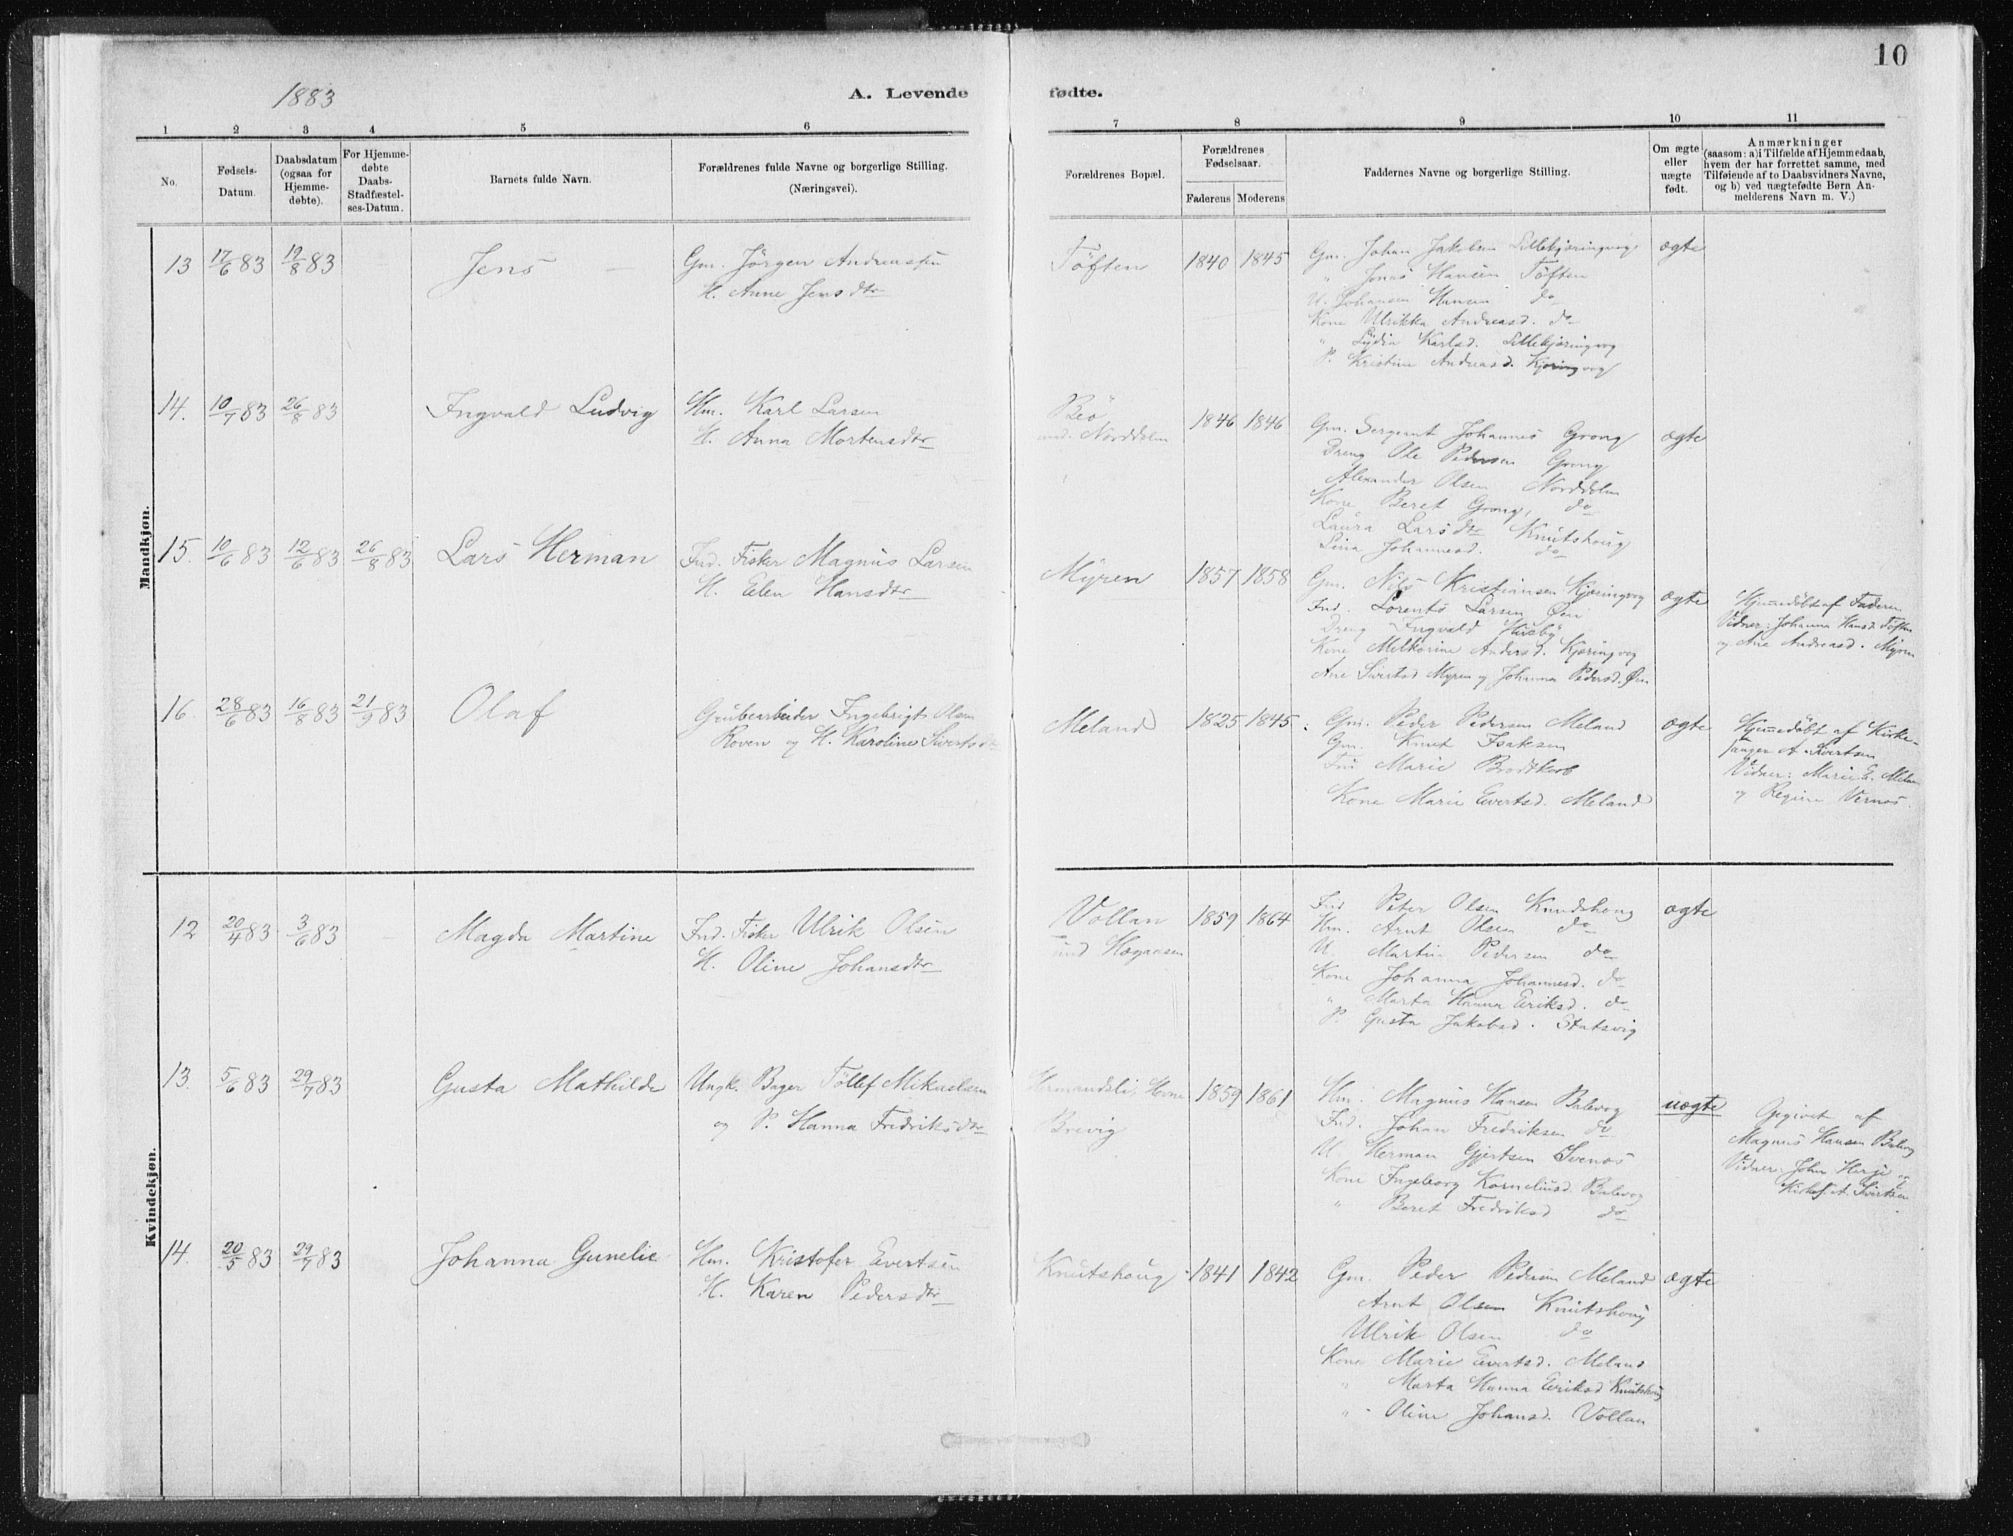 10
1883
A. Levende fødte.
1 2 3 4 5 6 7 8 9 10 11
No.
Fødsels-Datum.
Daabsdatum (ogsaa for Hjemme-døbte).
For Hjemme-døbte Daabs-Stadfæstel-ses-Datum.
Barnets fulde Navn.
Forældrenes fulde Navne og borgerlige Stilling.
(Næringsvei).
Forældrenes Bopæl.
Forældrenes Fødselsaar.
Faderens Moderens
Faddernes Navne og borgerlige Stilling.
Om ægte eller uægte født.
Anmærkninger
(saasom: a) i Tilfælde af Hjemmedaab,
hvem der har forrettet samme, med
Tilføiende af to Daabsvidners Navne,
og b) ved uægtefødte Børn An-
melderens Navn m. V.)
Mandkjøn.
13 17/6 83 19/8 83 — Jens —
Gm. Jörgen Andreassen
H. Anne Jensdtr
Töften 1840 1845
Gm. Johan Jakobsen Lillekjæringvog
" Jonas Hansen Töften
U. Johansen Hansen do
Kone Ulrikka Andreasd. do
" Lydia Karlsd. Lillekjæringvog
P. Kristine Andreasd. Kjæringvog
ægte
14. 10/7 83 26/8 83 Ingvald Ludvig
Hm. Karl Larsen
H. Anna Mortensdtr
Beö
und. Norddolm
1846 1846
Gm. Sergeant Johannes Grong
Dreng Ole Pedersen Grong
Alexander Olsen Norddolm
Kone Beret Grong, do
Laura Larsdtr Knutshoug
Lina Johannesd. do
ægte
15. 10/6 83 12/6 83 26/8 83 Lars Herman
Ind. Fisker Magnus Larsen
H. Elen Hansdtr
Myren 1857 1858
Gm. Nils Kristiansen Kjæringvog
Ind. Lorents Larsen Öien
Dreng Ingvald Husby
Kone Melkorine Andersd. Kjæringvog
Ane Sivertsd Myren og Johanna Pedersd. Öien
ægte
Hjemmedöbt af Faderen
Vidner: Johanna Hansd Töften
og Ane Andreasd. Myren
16 28/6 83 16/8 83 21/9 83 Olaf
Grubearbeider Ingebrigt Olsen
Roven og H. Karoline Sivertsdtr
Meland 1825 1845
Gm. Peder Pedersen Meland
Gm. Knut Isaksen
Fru Marie Brodtkorb
Kone Marie Evertsd. Meland
ægte
Hjemmedöbt af Kirke-
sanger A. Sivertsen
Vidner: Marie E. Meland
og Regine Vernæs.
Kvindekjøn.
12 20/4 83 3/6 83 — Magda Martine
Ind. Fisker Ulrik Olsen
H. Oline Johansdtr
Vollan
1859 1864
Ind Peter Olsen Knudshoug
Hm. Arnt Olsen do
U. Martin Pedersen do
Kone Johanna Johannesd. do
" Marta Hanna Eriksd. do
P. Gusta Jakobsd. Stutsvig
ægte
13. 5/6 83 29/7 83 Gusta Mathilde
Ungk. Bager Töllef Mikaelsen
og P. Hanna Fredriksdtr
Brevig
1859 1861
Hm. Magnus Hansen Balevog
Ind. Johan Fredriksen do
U. Herman Gjertsen Svenös
Kone Ingeborg Korneliusd. Balevog
" Beret Fredriksd do
uægte
Opgivet af
Magnus Hansen Balevog
Vidner: John Herje og
Kirkes. A. Sivertsen.
14. 20/5 83 29/7 83 Johanna Gunelie
Hm. Kristofer Evertsen
H. Karen Pedersdtr
Knutshoug 1841 1842
Gm. Peder Pedersen Meland
Arnt Olsen Knutshoug
Ulrik Olsen do
Kone Marie Evertsd. Meland
" Marta Hanna Eriksd Knutshoug
" Oline Johansd. Vollan
ægte